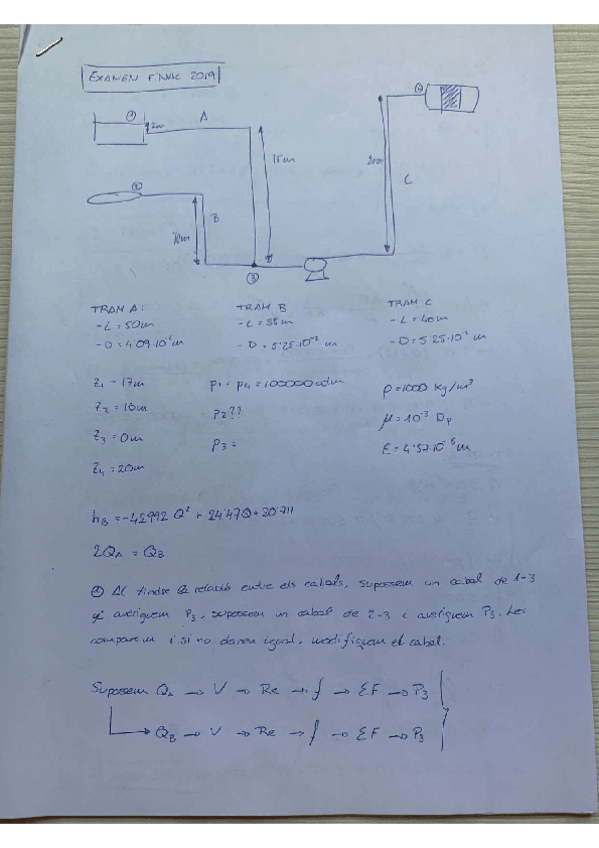 EXAMEN FINAL 2019
① 2m A
④
15m
20m
C
②
10m B
③
TRAM A:
- L = 50m
- D = 4'09·10⁻² m
TRAM B
- L = 35m
- D = 5'25·10⁻² m
TRAM C
- L = 40m
- D = 5'25·10⁻² m
Z₁ = 17m
Z₂ = 10m
Z₃ = 0m
Z₄ = 20m
P₁ = P₄ = 100000
P2??
P3 =
ρ = 1000 Kg/m³
μ = 10⁻³
ε = 4'57·10⁻⁵ m
h_B = -42992 Q² + 24'47Q + 20'711
2Q_A = Q_B
① Al tindre la relació entre els cabals, suposem un cabal de 1-3
i averiguem P₃, suposem un cabal de 2-3 i averiguem P₃. Les
comparem i si no donen igual, modifiquem el cabal.
Suposem Q_A → V → Re → f → ΣF → P₃
Q_B → V → Re → f → ΣF → P₃